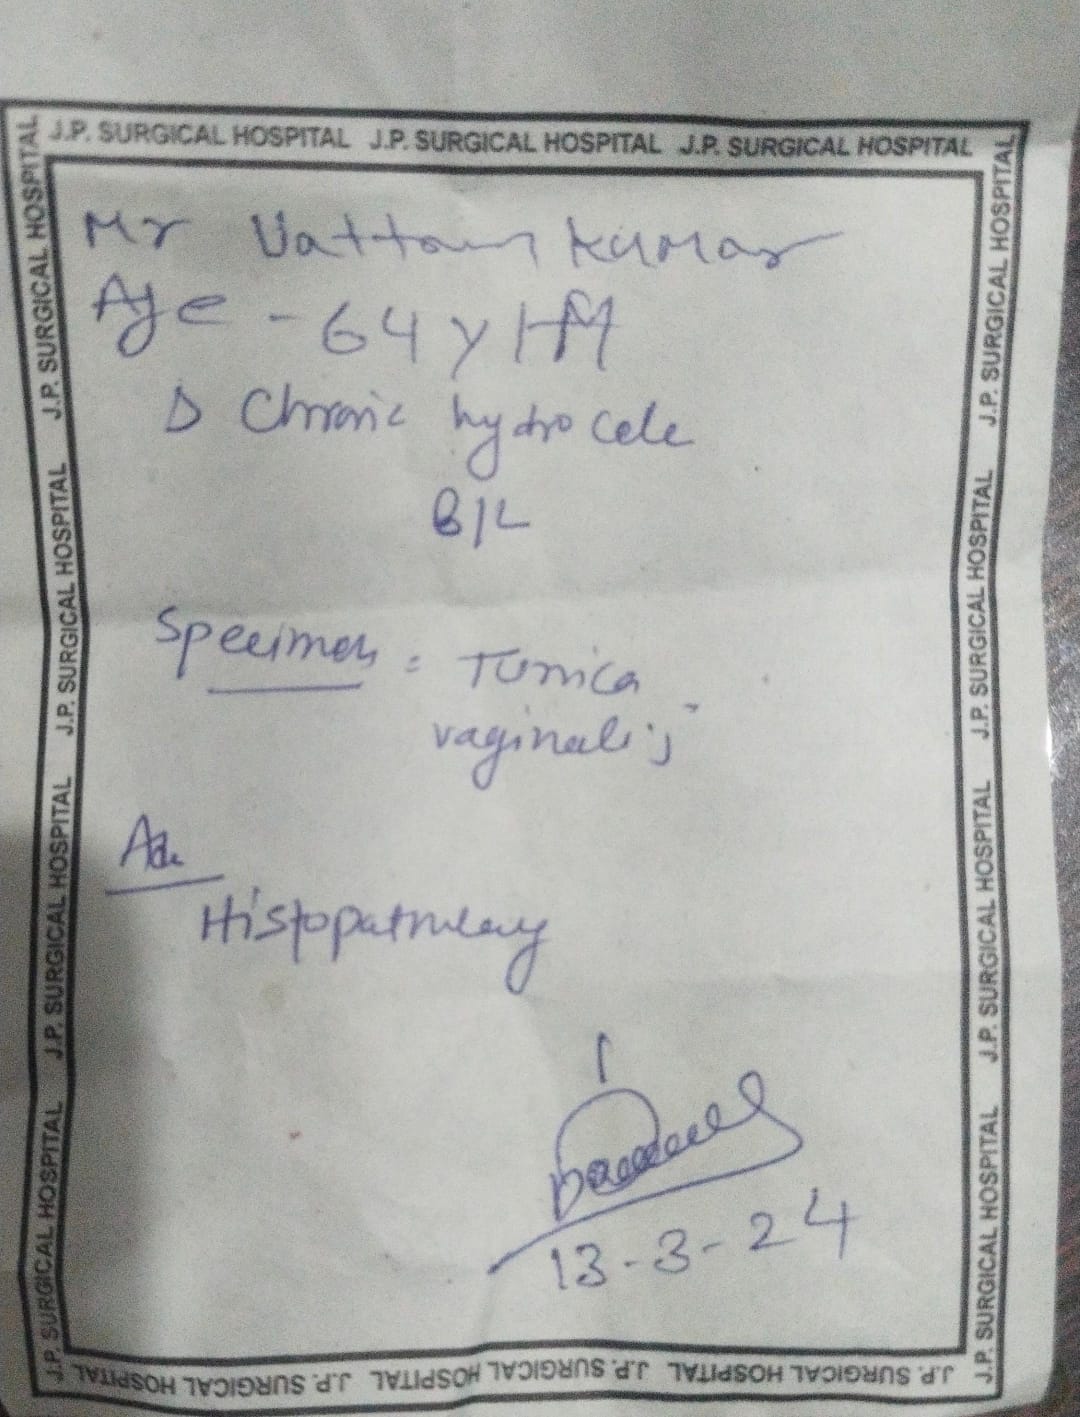 J.P. SURGICAL HOSPITAL J.P. SURGICAL HOSPITAL J.P. SURGICAL HOSPITAL
Mr Uattam Kumar
Age - 64 y / M
D Chronic hydrocele
B/L
Specimen = Tunica
vaginalis
Histopathology
13-3-24
J.P. SURGICAL HOSPITAL J.P. SURGICAL HOSPITAL J.P. SURGICAL HOSPITAL J.P. SURGICAL HOSPITAL
J.P. SURGICAL HOSPITAL J.P. SURGICAL HOSPITAL J.P. SURGICAL HOSPITAL J.P. SURGICAL HOSPITAL
J.P. SURGICAL HOSPITAL J.P. SURGICAL HOSPITAL J.P. SURGICAL HOSPITAL